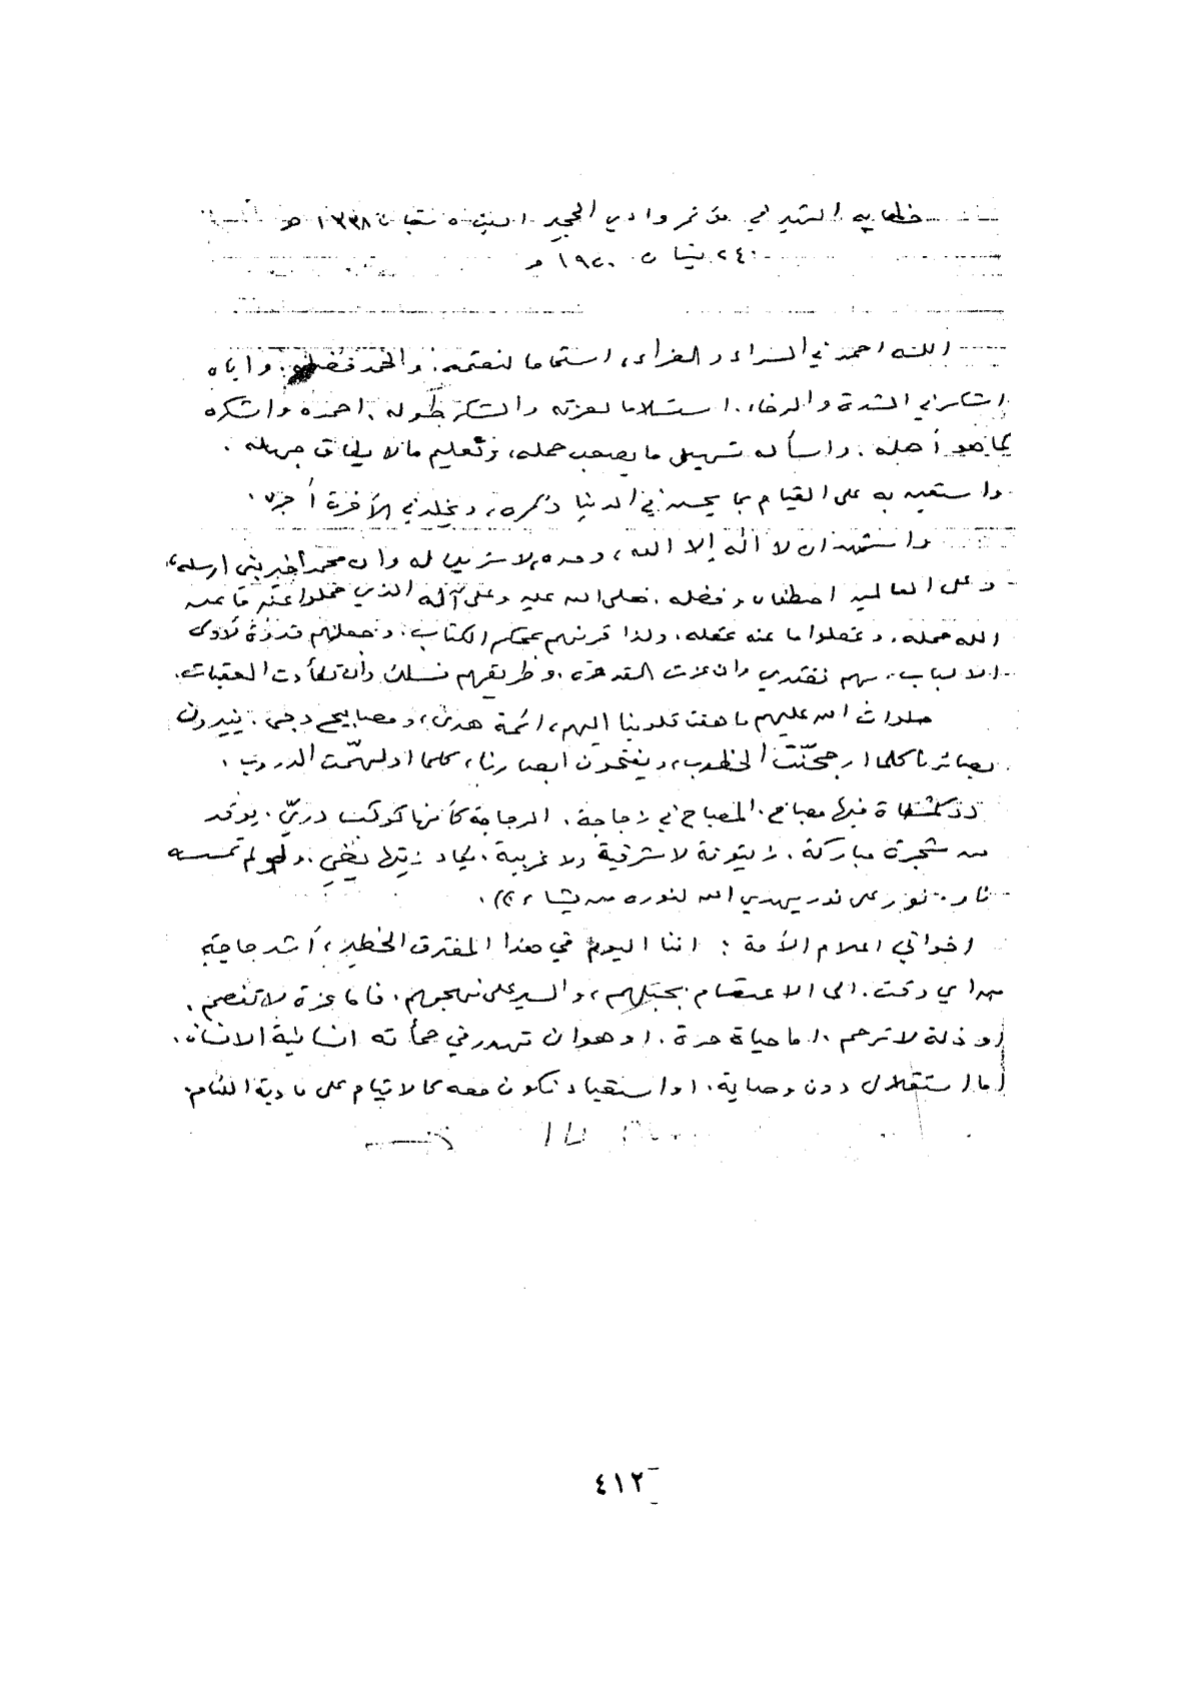 خطاب السيد في مؤتمر وادي الحجير السبت ٥ شعبان ١٣٣٨ هـ
٢٤ نيسان ١٩٢٠ م
الله احمد في السراء والضراء، استتماما لنعمته. والحمد فضله. واياه
اشكر في الشدة والرخاء. استسلاما لعزته والشكر طوله. احمده واشكره
كما هو أهله. واسأله تسهيل ما يصعب حمله، وتعليم ما لا يطاق جهله.
واستعينه به على القيام بما يحسن في الدنيا ذكره، ويخلد في الآخرة أجره.
واشهد ان لا اله إلا الله، وحده لا شريك له وان محمدا خير بني ارسله،
وعلى العالمين اصطفاه وفضله. فصلى الله عليه وعلى آله الذي حملوا عنه ما عن
الله حمله. وعقلوا ما عنه عقله. ولذا قرنهم بمحكم الكتاب. وجعلهم قدوة لأولى
الالباب. بهم نقتدي وان عزت القدوة. وطريقهم نسلك وان تكأدت العقبات.
صلوات الله عليهم ما هفت قلوبنا اليهم، ائمة هدى، ومصابيح دجى. ينيرون
بصائرنا كلما ارجحنّت الخطوب، ويفتحون ابصارنا، كلما ادلهمّت الدروب.
((كمشكاة فيها مصباح. المصباح في زجاجة. الزجاجة كأنها كوكب دريّ. يوقد
من شجرة مباركة. زيتونة لا شرقية ولا غربية. يكاد زيتها يضيء. ولو لم تمسسه
نار. نور على نور يهدي الله لنوره من يشاء)).
اخواني اعلام الأمة : اننا اليوم في هذا المفترق الخطير، أشد حاجة
من اي وقت. الى الاعتصام بحبلهم، والسير على نهجهم. فاما عزة لا تفصم.
او ذلة لا ترحم. اما حياة حرة. او هوان تهدر في حمأته انسانية الانسان.
اما استقلال دون وصاية. او استعباد نكون معه كالايتام على مادبة اللئام.
٤١٢